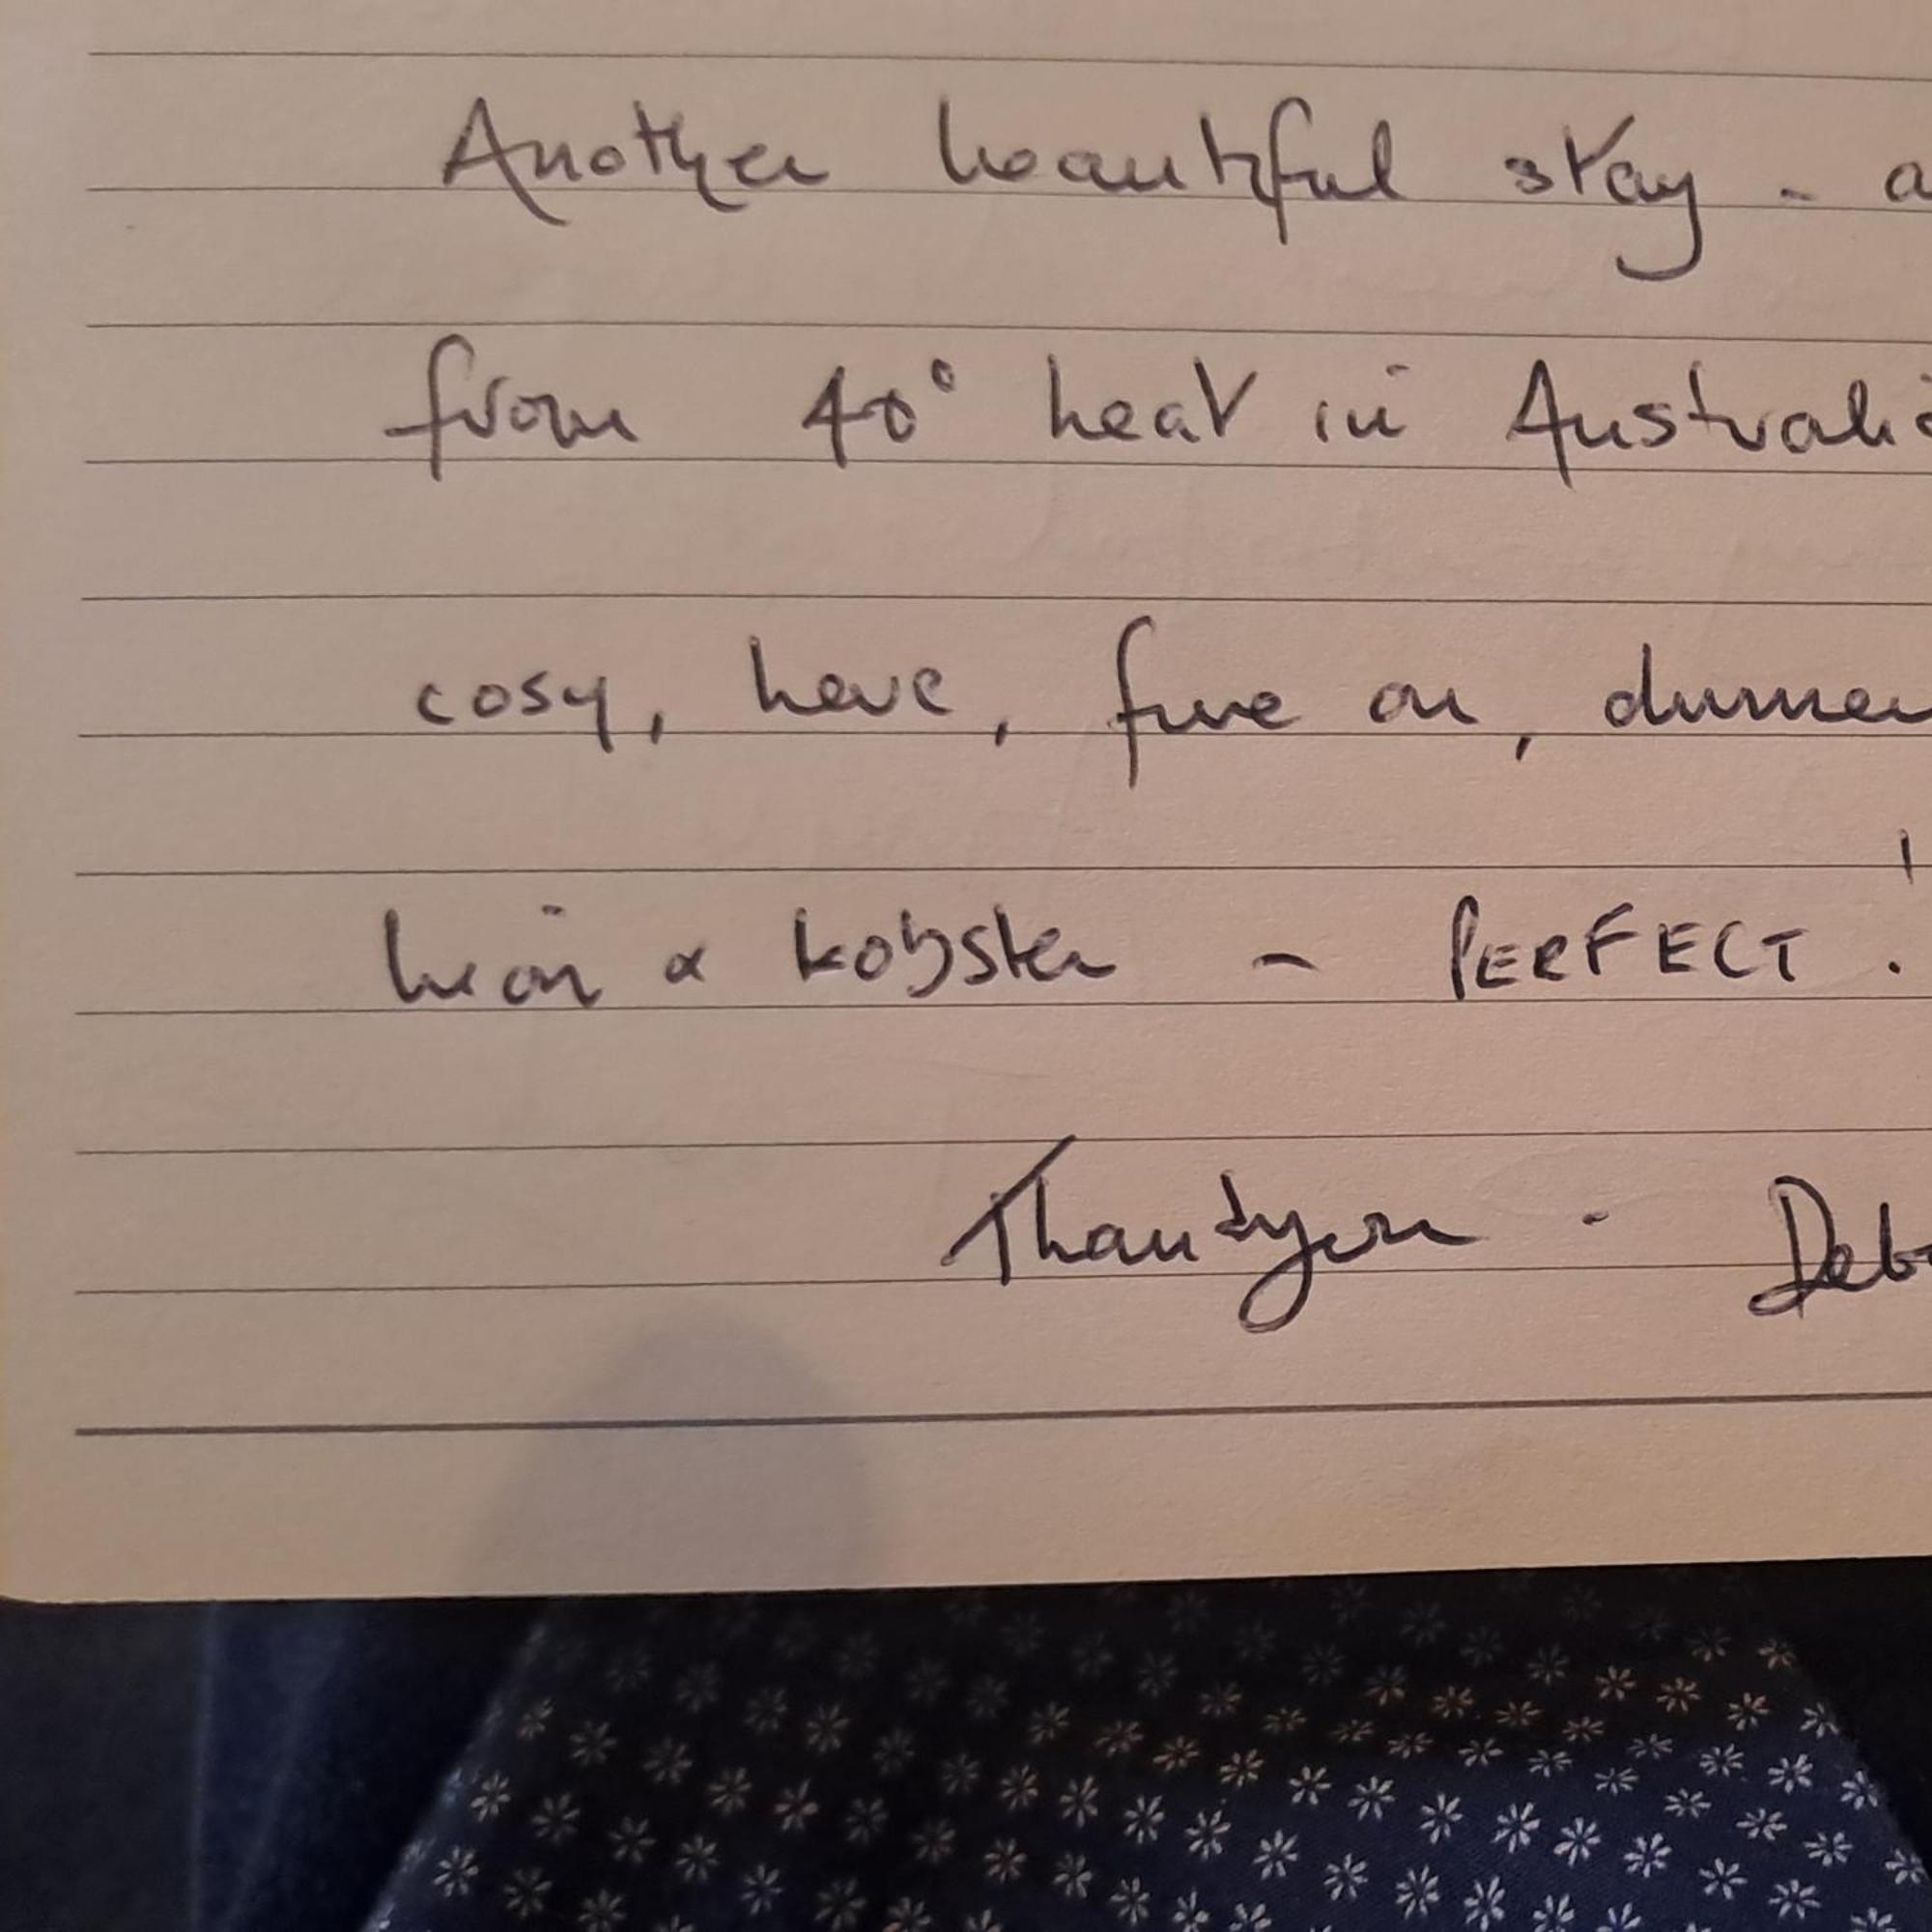 Another beautiful stay - a
from 40° heat in Australia
cosy, here, fire on, dinner
& lobster - PERFECT!
Thankyou - Deb